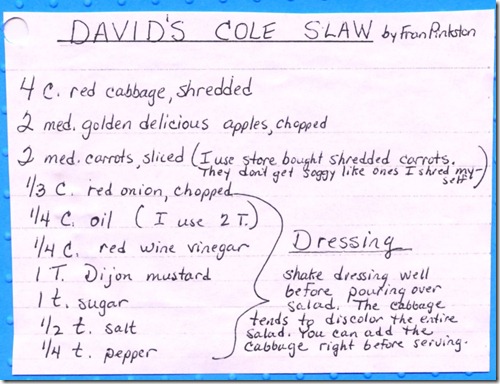 DAVID'S COLE SLAW by Fran Pinkston
4 C. red cabbage, shredded
2 med. golden delicious apples, chopped
2 med. carrots, sliced (I use store bought shredded carrots.
They don't get soggy like ones I shred my-
self)
1/3 C. red onion, chopped
1/4 C. oil (I use 2 T.)
1/4 C. red wine vinegar
1 T. Dijon mustard
1 t. sugar
1/2 t. salt
1/4 t. pepper
Dressing
shake dressing well
before pouring over
salad. The cabbage
tends to discolor the entire
salad. You can add the
cabbage right before serving.